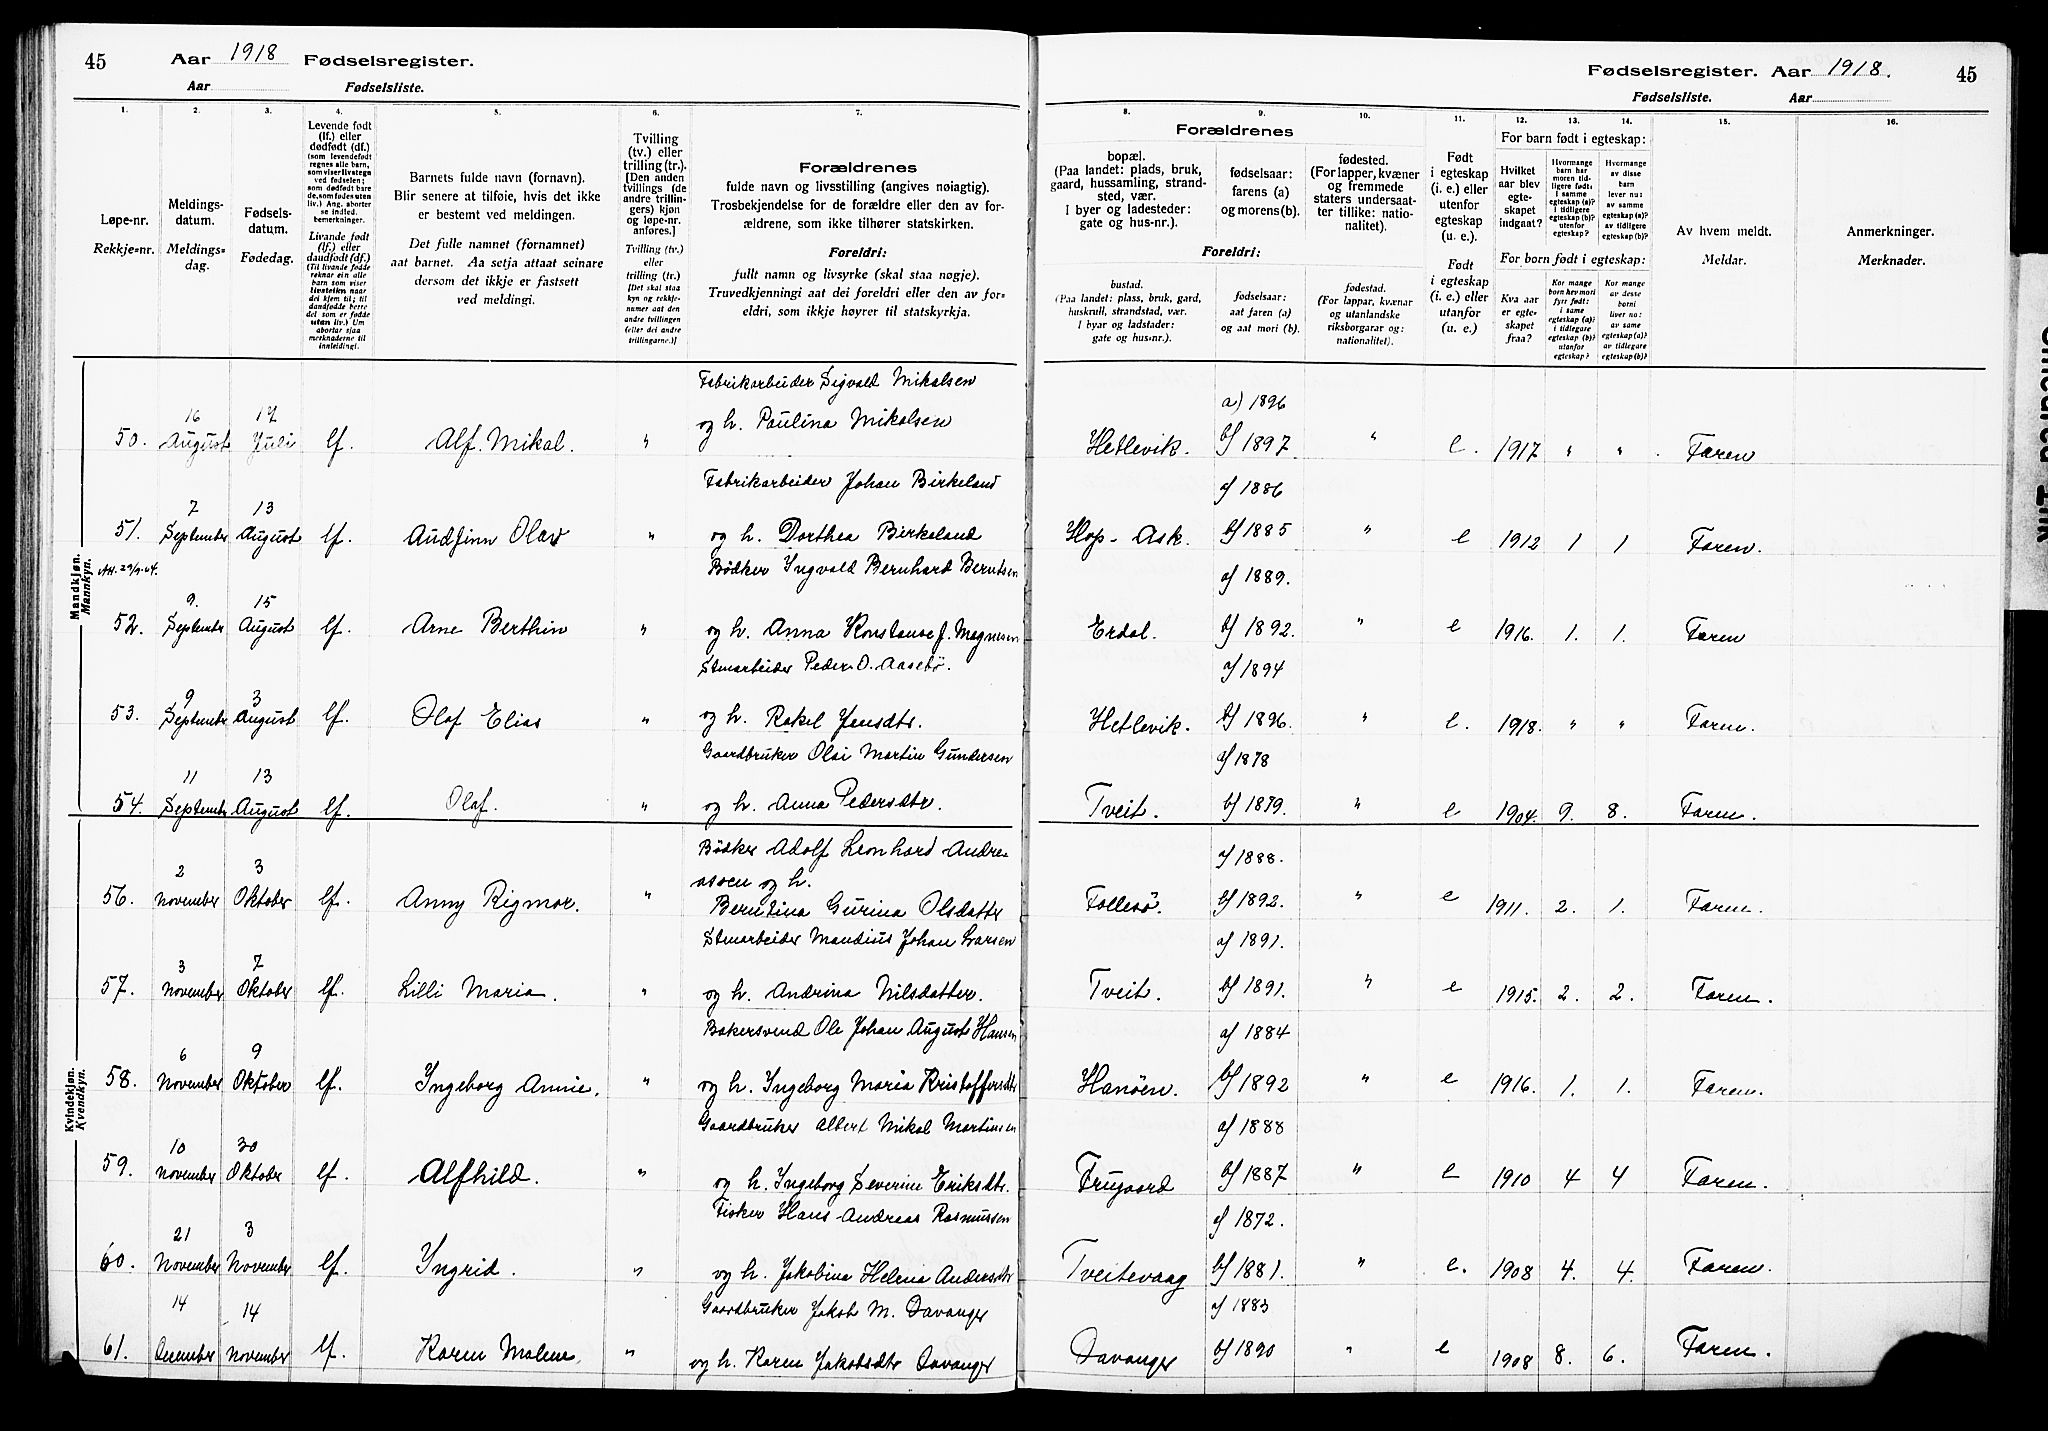 45 Aar 1918 Fødselsregister.
Aar Fødselsliste.
Fødselsregister. Aar 1918. 45
Fødselsliste. Aar
1. 2. 3. 4. 5. 6. 7. 8. 9. 10. 11. 12. 13. 14. 15. 16.
Løpe-nr.
Rekkje=nr.
Meldings-
datum.
Meldings=
dag.
Fødsels-
datum.
Fødedag.
Levende født
(lf.) eller
dødfødt (df.)
(som levendefødt
regnes alle barn,
som viser livstegn
ved fødselen;
som dødfødt bare
de, som fødes uten
liv.) Ang. aborter
se indled.
bemerkninger.
Livande født
(lf.) eller
daudfødt (df.)
(Til livande fødde
reknar ein alle
born som viser
livsteikn naar
dei kjem til; til
daudfødde berre
dei som er fødde
utan liv.) Um
abortar sjaa
merknaderne til
innleidingi.
Barnets fulde navn (fornavn).
Blir senere at tilføie, hvis det ikke
er bestemt ved meldingen.
Det fulle namnet (fornamnet)
aat barnet. Aa setja attaat seinare
dersom det ikkje er fastsett
ved meldingi.
Tvilling
(tv.) eller
trilling (tr.).
[Den anden
tvillings (de
andre trillin-
gers) kjøn
og løpe-nr.
anføres.]
Tvilling (tv.)
eller
trilling (tr.)
[Det skal staa
kyn og rekkje-
numer aat den
andre tvillingen
(eller dei andre
trillingarne.)]
Forældrenes
fulde navn og livsstilling (angives nøiagtig).
Trosbekjendelse for de forældre eller den av for-
ældrene, som ikke tilhører statskirken.
Foreldri:
fullt namn og livsyrke (skal staa nøgje).
Truvedkjenningi aat dei foreldri eller den av for=
eldri, som ikkje høyrer til statskyrkja.
Forældrenes
bopæl.
(Paa landet: plads, bruk,
gaard, hussamling, strand-
sted, vær.
I byer og ladesteder:
gate og hus-nr.).
fødselsaar:
farens (a)
og morens (b).
fødested.
(For lapper, kvæner
og fremmede
staters undersaat-
ter tillike: natio-
nalitet).
Foreldri:
bustad.
(Paa landet: plass, bruk, gard,
huskrull, strandstad, vær.
I byar og ladstader:
gate og hus=nr.).
fødselsaar:
aat faren (a)
og aat mori (b).
fødestad.
(For lappar, kvænar
og utanlandske
riksborgarar og:
nationalitet).
Født
i egteskap
(i. e.) eller
utenfor
egteskap
(u. e.).
Født
i egteskap
(i. e.) eller
utanfor
(u. e.).
For barn født i egteskap:
Hvilket
aar blev
egte-
skapet
indgaat?
Hvormange
barn har
moren tid-
ligere født:
i samme
egteskap (a)?
i tidligere
egteskap (b)?
utenfor
egteskap?
Hvormange
av disse
barn
lever nu:
av samme
egteskap (a)?
av tidligere
egteskap (b)?
For born født i egteskap:
Kva aar
er egte-
skapet
fraa?
Kor mange
born hev mori
fyrr født:
i same
egteskap (a)?
i tidlegare
egteskap (b)?
utanfor
egteskap?
Kor mange
av desse
borni
liver no:
av same
egteskap (a)?
av tidlegare
egteskap (b)?
Av hvem meldt.
Meldar.
Anmerkninger.
Merknader.
Mandkjøn.
Mannkyn.
Fabrikarbeider Sigvald Mikalsen
50. 16 August 17 Juli lf. Alf. Mikal. " og h. Paulina Mikalsen Hetlevik. a) 1896 b) 1897. " e. 1917 " " Faren
Fabrikarbeider Johan Birkeland
51. 7 September 13 August lf. Audfinn Olav " og h. Dorthea Birkeland Hop - Ask. a) 1886 b) 1885 " e 1912 1 1 Faren.
Bødker Ingvald Bernhard Berntsen
52. 9. September 15 August lf. Arne Berthin " og h. Anna Konstanse f. Magnesen Erdal. a) 1889. b) 1892. " e 1916. 1. 1. Faren
Stenarbeider Peder O. Aasebø.
53. 9 September 3 August lf. Olaf Elias " og h. Rakel Jensdtr. Hetlevik. a) 1894 b) 1896. " e. 1918. " " Faren.
Gaardbruker Olai Martin Gundersen
54. 11 September 13 August lf. Olaf. " og h. Anna Pedersdtr. Tveit. a) 1878 b) 1879. " e 1904. 9. 8. Faren.
Kvindekjøn.
Kvendkyn.
Bødker Adolf Leonhard Andre-
assen og h.
56. 2 November 3 Oktober lf. Anny Rigmor. " Berntina Gurina Olsdatter Follesø. a) 1888. b) 1892. " e 1911. 2. 1. Faren.
Stenarbeider Mandius Johan Larsen
57. 3 November 7 Oktober lf. Lilli Maria. " og h. Andrina Nilsdatter. Tveit. a) 1891. b) 1891. " e 1915. 2. 2. Faren.
Bakersvend Ole Johan August Hansen
58. 6 November 9 Oktober lf. Ingeborg Annie. " og h. Ingeborg Maria Kristoffersdtr Hanøen. a) 1884 b) 1892 " e 1916. 1. 1. Faren.
Gaardbruker Albert Mikal Martinsen
59. 10 November 30 Oktober lf. Alfhild. " og h. Ingeborg Severine Eriksdtr. Frugaard a) 1888 b) 1887 " e 1910 4 4 Faren.
Fisker Hans Andreas Rasmussen
60. 21 November 3 November lf. Ingrid. " og h. Jakobina Helena Andersdtr Tveitevaag a) 1872. b) 1881. " e. 1908 4. 4. Faren.
Gaardbruker Jakob M. Davanger
61. 14 December 14 November lf. Karen Malene. " og h. Karen Jakobsdtr Davanger Davanger a) 1883 b) 1890 " e 1908 8. 6. Faren.